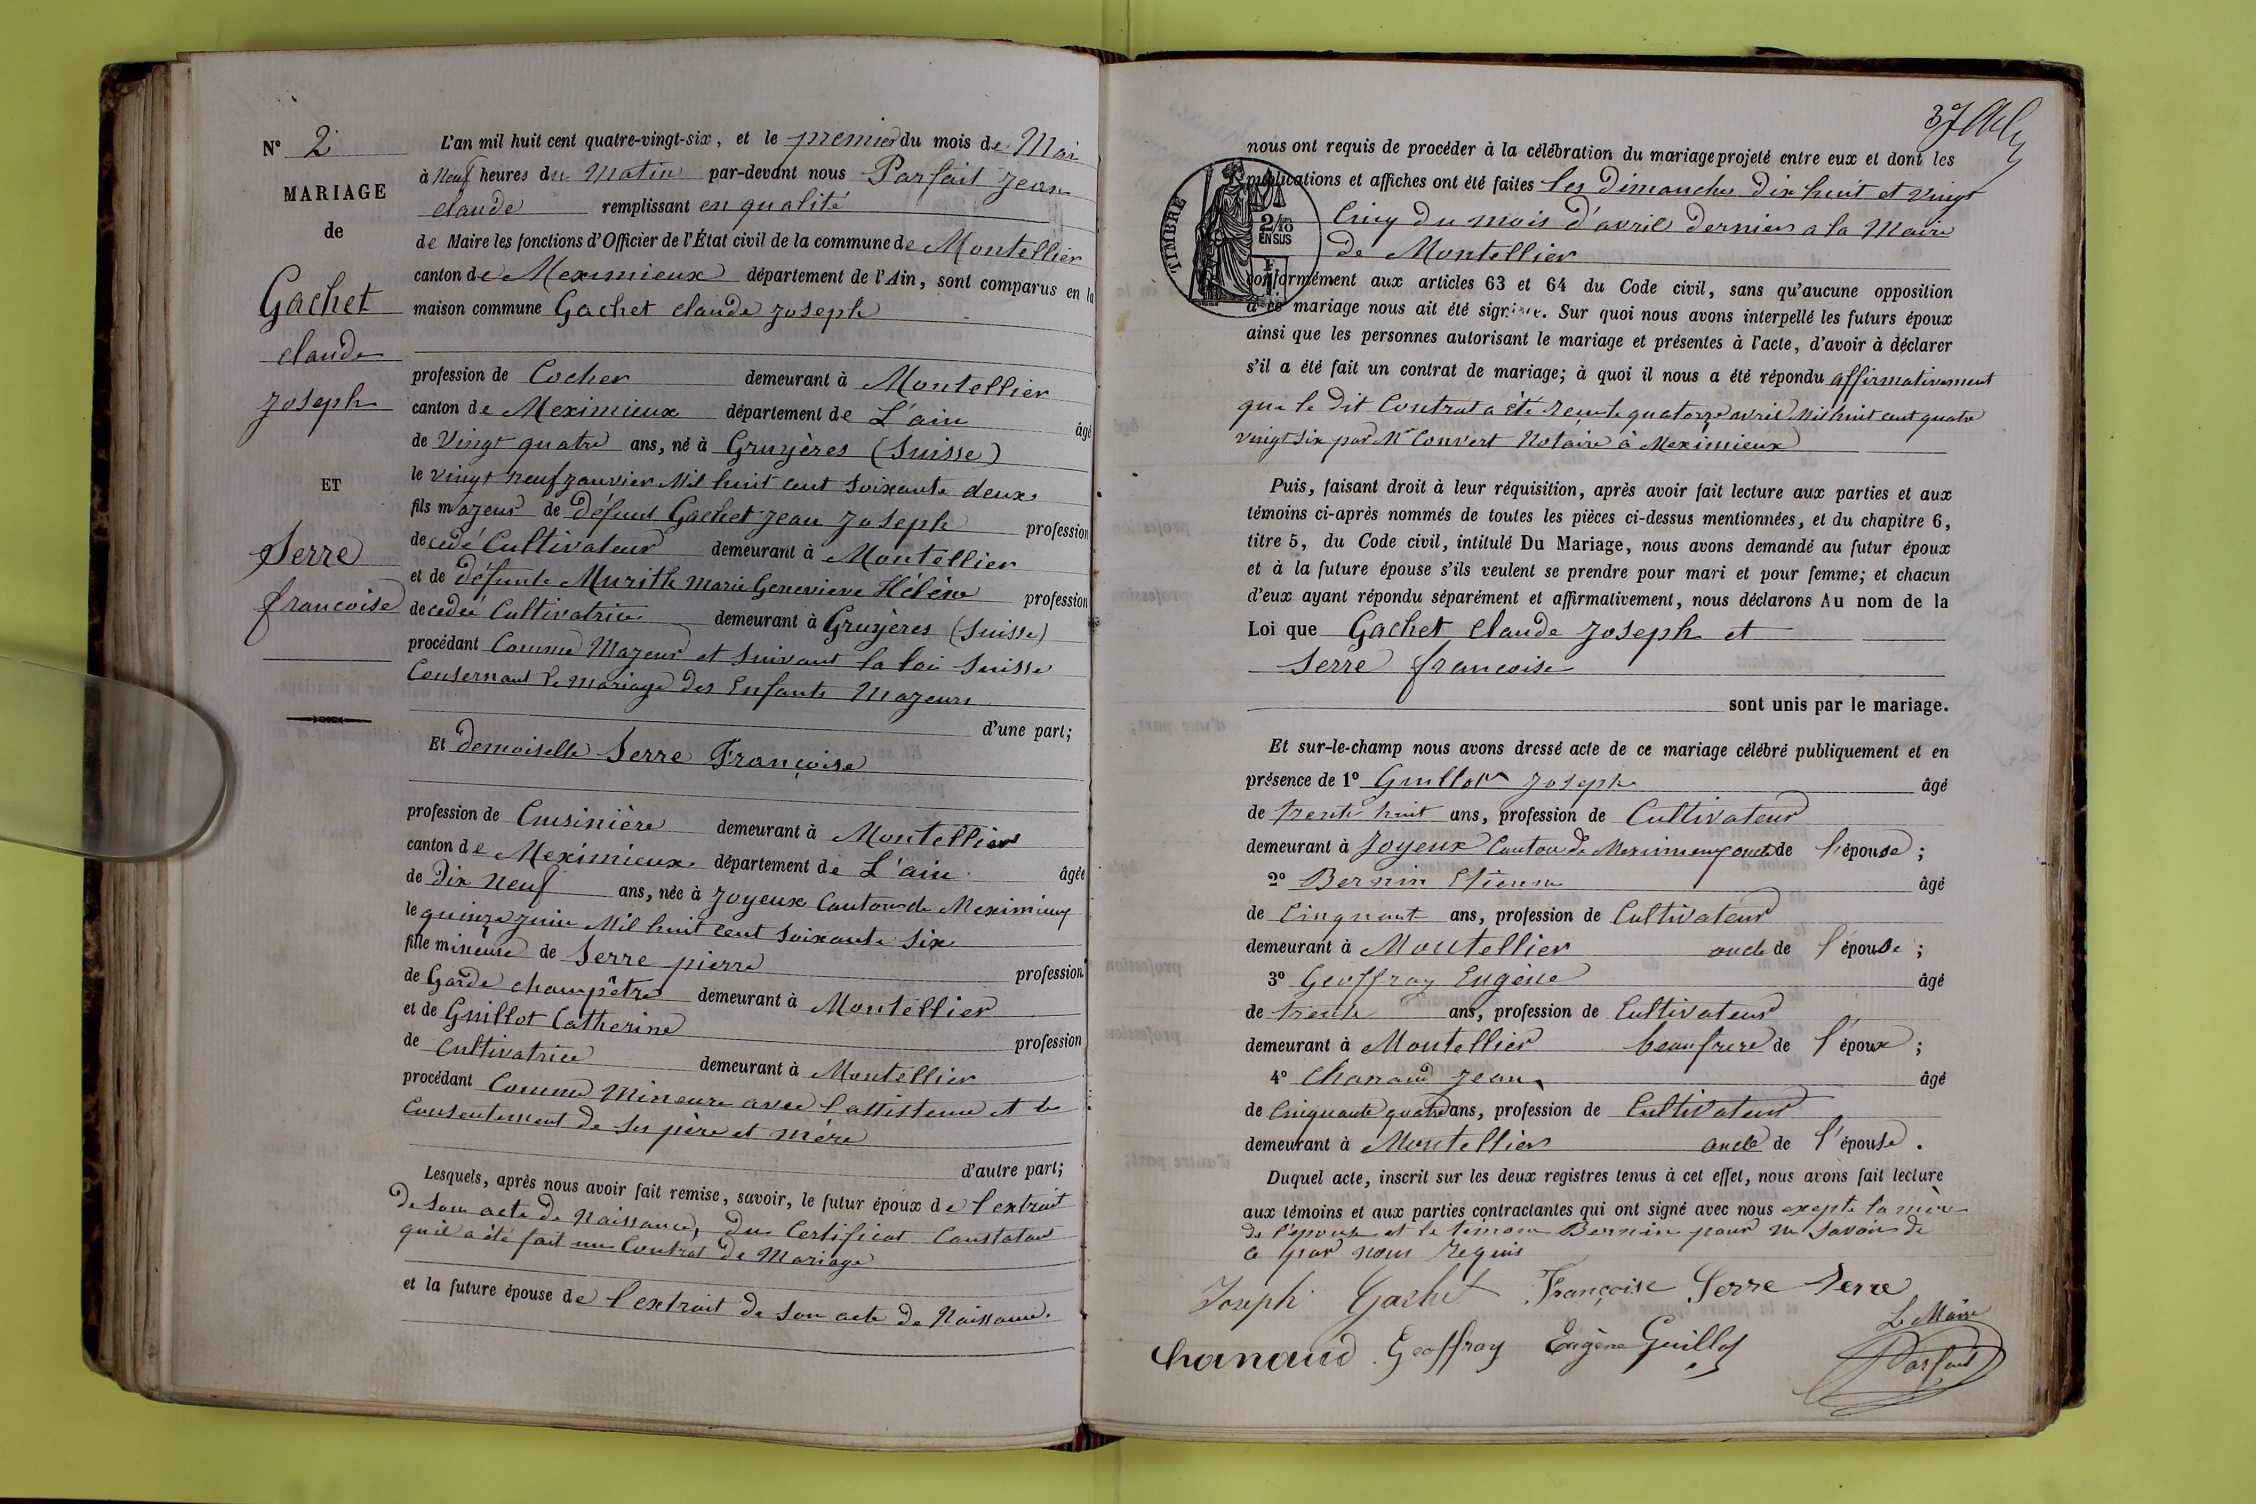 N° 2
MARIAGE
de
Gachet
claude
Joseph
ET
Serre
francoise
L'an mil huit cent quatre-vingt-six, et le premier du mois de Mai
à Neuf heures du Matin par-devant nous Parfait Jean
claude remplissant en qualité
de Maire les fonctions d'Officier de l'État civil de la commune de Montellier
canton de Meximieux département de l'Ain, sont comparus en la
maison commune Gachet claude Joseph
profession de Cocher demeurant à Montellier
canton de Meximieux département de L'ain âgé
de Vingt quatre ans, né à Gruyères (Suisse)
le vingt neuf Janvier Mil huit cent soixante deux
fils majeur de défunt Gachet Jean Joseph profession
decedé Cultivateur demeurant à Montellier
et de défunte Murith marie Genevieve Hélène profession
decedée Cultivatrice demeurant à Gruyères (Suisse)
procédant Comme Majeur et suivant la loi Suisse
Consernant le mariage des Enfants Majeurs
d'une part;
Et demoiselle Serre Françoise
profession de Cuisinière demeurant à Montellier
canton de Meximieux département de L'ain âgée
de Dix neuf ans, née à Joyeux Canton de Meximieux
le quinze Juin Mil huit cent soixante six
fille mineure de Serre pierre profession
de Garde champêtre demeurant à Montellier
et de Guillot Catherine profession
de Cultivatrice demeurant à Montellier
procédant Comme Mineure avec l'assistence et le
Consentement de ses père et mère
d'autre part;
Lesquels, après nous avoir fait remise, savoir, le futur époux de l'extrait
de son acte de Naissance, du Certificat Constatant
qu'il a été fait un Contrat de Mariage
et la future épouse de l'extrait de son acte de Naissance.
37
nous ont requis de procéder à la célébration du mariage projeté entre eux et dont les
publications et affiches ont été faites les dimanches dix huit et vingt
Cinq du mois d'avril dernier a la Mairie
de Montellier
TIMBRE
2/10
EN SUS
conformément aux articles 63 et 64 du Code civil, sans qu'aucune opposition
à ce mariage nous ait été signifiée. Sur quoi nous avons interpellé les futurs époux
ainsi que les personnes autorisant le mariage et présentes à l'acte, d'avoir à déclarer
s'il a été fait un contrat de mariage; à quoi il nous a été répondu affirmativement
que le dit Contrat a été reçu le quatorze avril Mil huit cent quatre
vingt six par Mr Convert Notaire à Meximieux
Puis, faisant droit à leur réquisition, après avoir fait lecture aux parties et aux
témoins ci-après nommés de toutes les pièces ci-dessus mentionnées, et du chapitre 6,
titre 5, du Code civil, intitulé Du Mariage, nous avons demandé au futur époux
et à la future épouse s'ils veulent se prendre pour mari et pour femme; et chacun
d'eux ayant répondu séparément et affirmativement, nous déclarons Au nom de la
Loi que Gachet claude Joseph et
Serre francoise
sont unis par le mariage.
Et sur-le-champ nous avons dressé acte de ce mariage célébré publiquement et en
présence de 1° Guillot Joseph âgé
de trente huit ans, profession de Cultivateur
demeurant à Joyeux Canton de Meximieux oncle de l'épouse;
2° Bernin Etienne âgé
de Cinquante ans, profession de Cultivateur
demeurant à Montellier oncle de l'épouse;
3° Geoffray Eugène âgé
de trente ans, profession de Cultivateur
demeurant à Montellier beaufrere de l'époux;
4° Chanaud Jean âgé
de Cinquante quatre ans, profession de Cultivateur
demeurant à Montellier oncle de l'épouse.
Duquel acte, inscrit sur les deux registres tenus à cet effet, nous avons fait lecture
aux témoins et aux parties contractantes qui ont signé avec nous exepté la mère
de l'épouse et le temoin Bernin pour ne savoir de
ce par nous requis
Joseph Gachet Françoise Serre Serre
Le Maire
Chanaud Geoffray Eugène Guillot Parfait